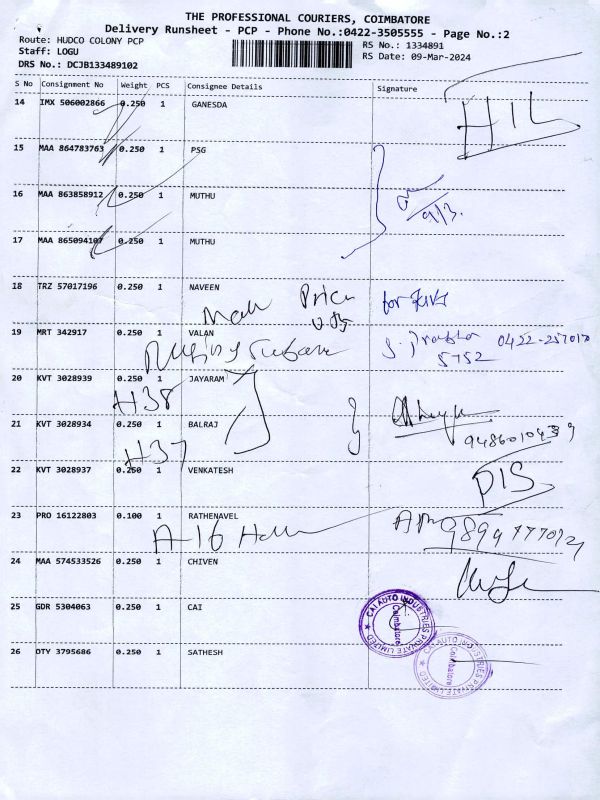 THE PROFESSIONAL COURIERS, COIMBATORE
Delivery Runsheet - PCP - Phone No.:0422-3505555 - Page No.:2
Route: HUDCO COLONY PCP
Staff: LOGU
DRS No.: DCJB133489102
RS No.: 1334891
RS Date: 09-Mar-2024
S No Consignment No Weight PCS Consignee Details Signature
14 IMX 506002866 0.250 1 GANESDA
HIL
15 MAA 864783763 0.250 1 PSG
16 MAA 863858912 0.250 1 MUTHU
9/3.
17 MAA 865094107 0.250 1 MUTHU
18 TRZ 57017196 0.250 1 NAVEEN
for
19 MRT 342917 0.250 1 VALAN
0422-257017
5752
20 KVT 3028939 0.250 1 JAYARAM
H38
21 KVT 3028934 0.250 1 BALRAJ
H37
22 KVT 3028937 0.250 1 VENKATESH
DIS
23 PRO 16122803 0.100 1 RATHENAVEL
A-16
24 MAA 574533526 0.250 1 CHIVEN
25 GDR 5304063 0.250 1 CAI
CAI AUTO INDUSTRIES PRIVATE LIMITED
Coimbatore
26 DTY 3795686 0.250 1 SATHESH
CAI AUTO INDUSTRIES PRIVATE LIMITED
Coimbatore